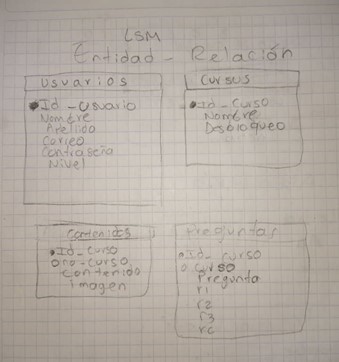 LSM
Entidad - Relación
Usuarios
Id_usuario
Nombre
Apellido
Correo
Contraseña
Nivel
Cursos
Id_curso
Nombre
Desbloqueo
Contenidos
Id_curso
curso
contenido
imagen
Preguntas
Id_curso
curso
Pregunta
r1
r2
r3
rc